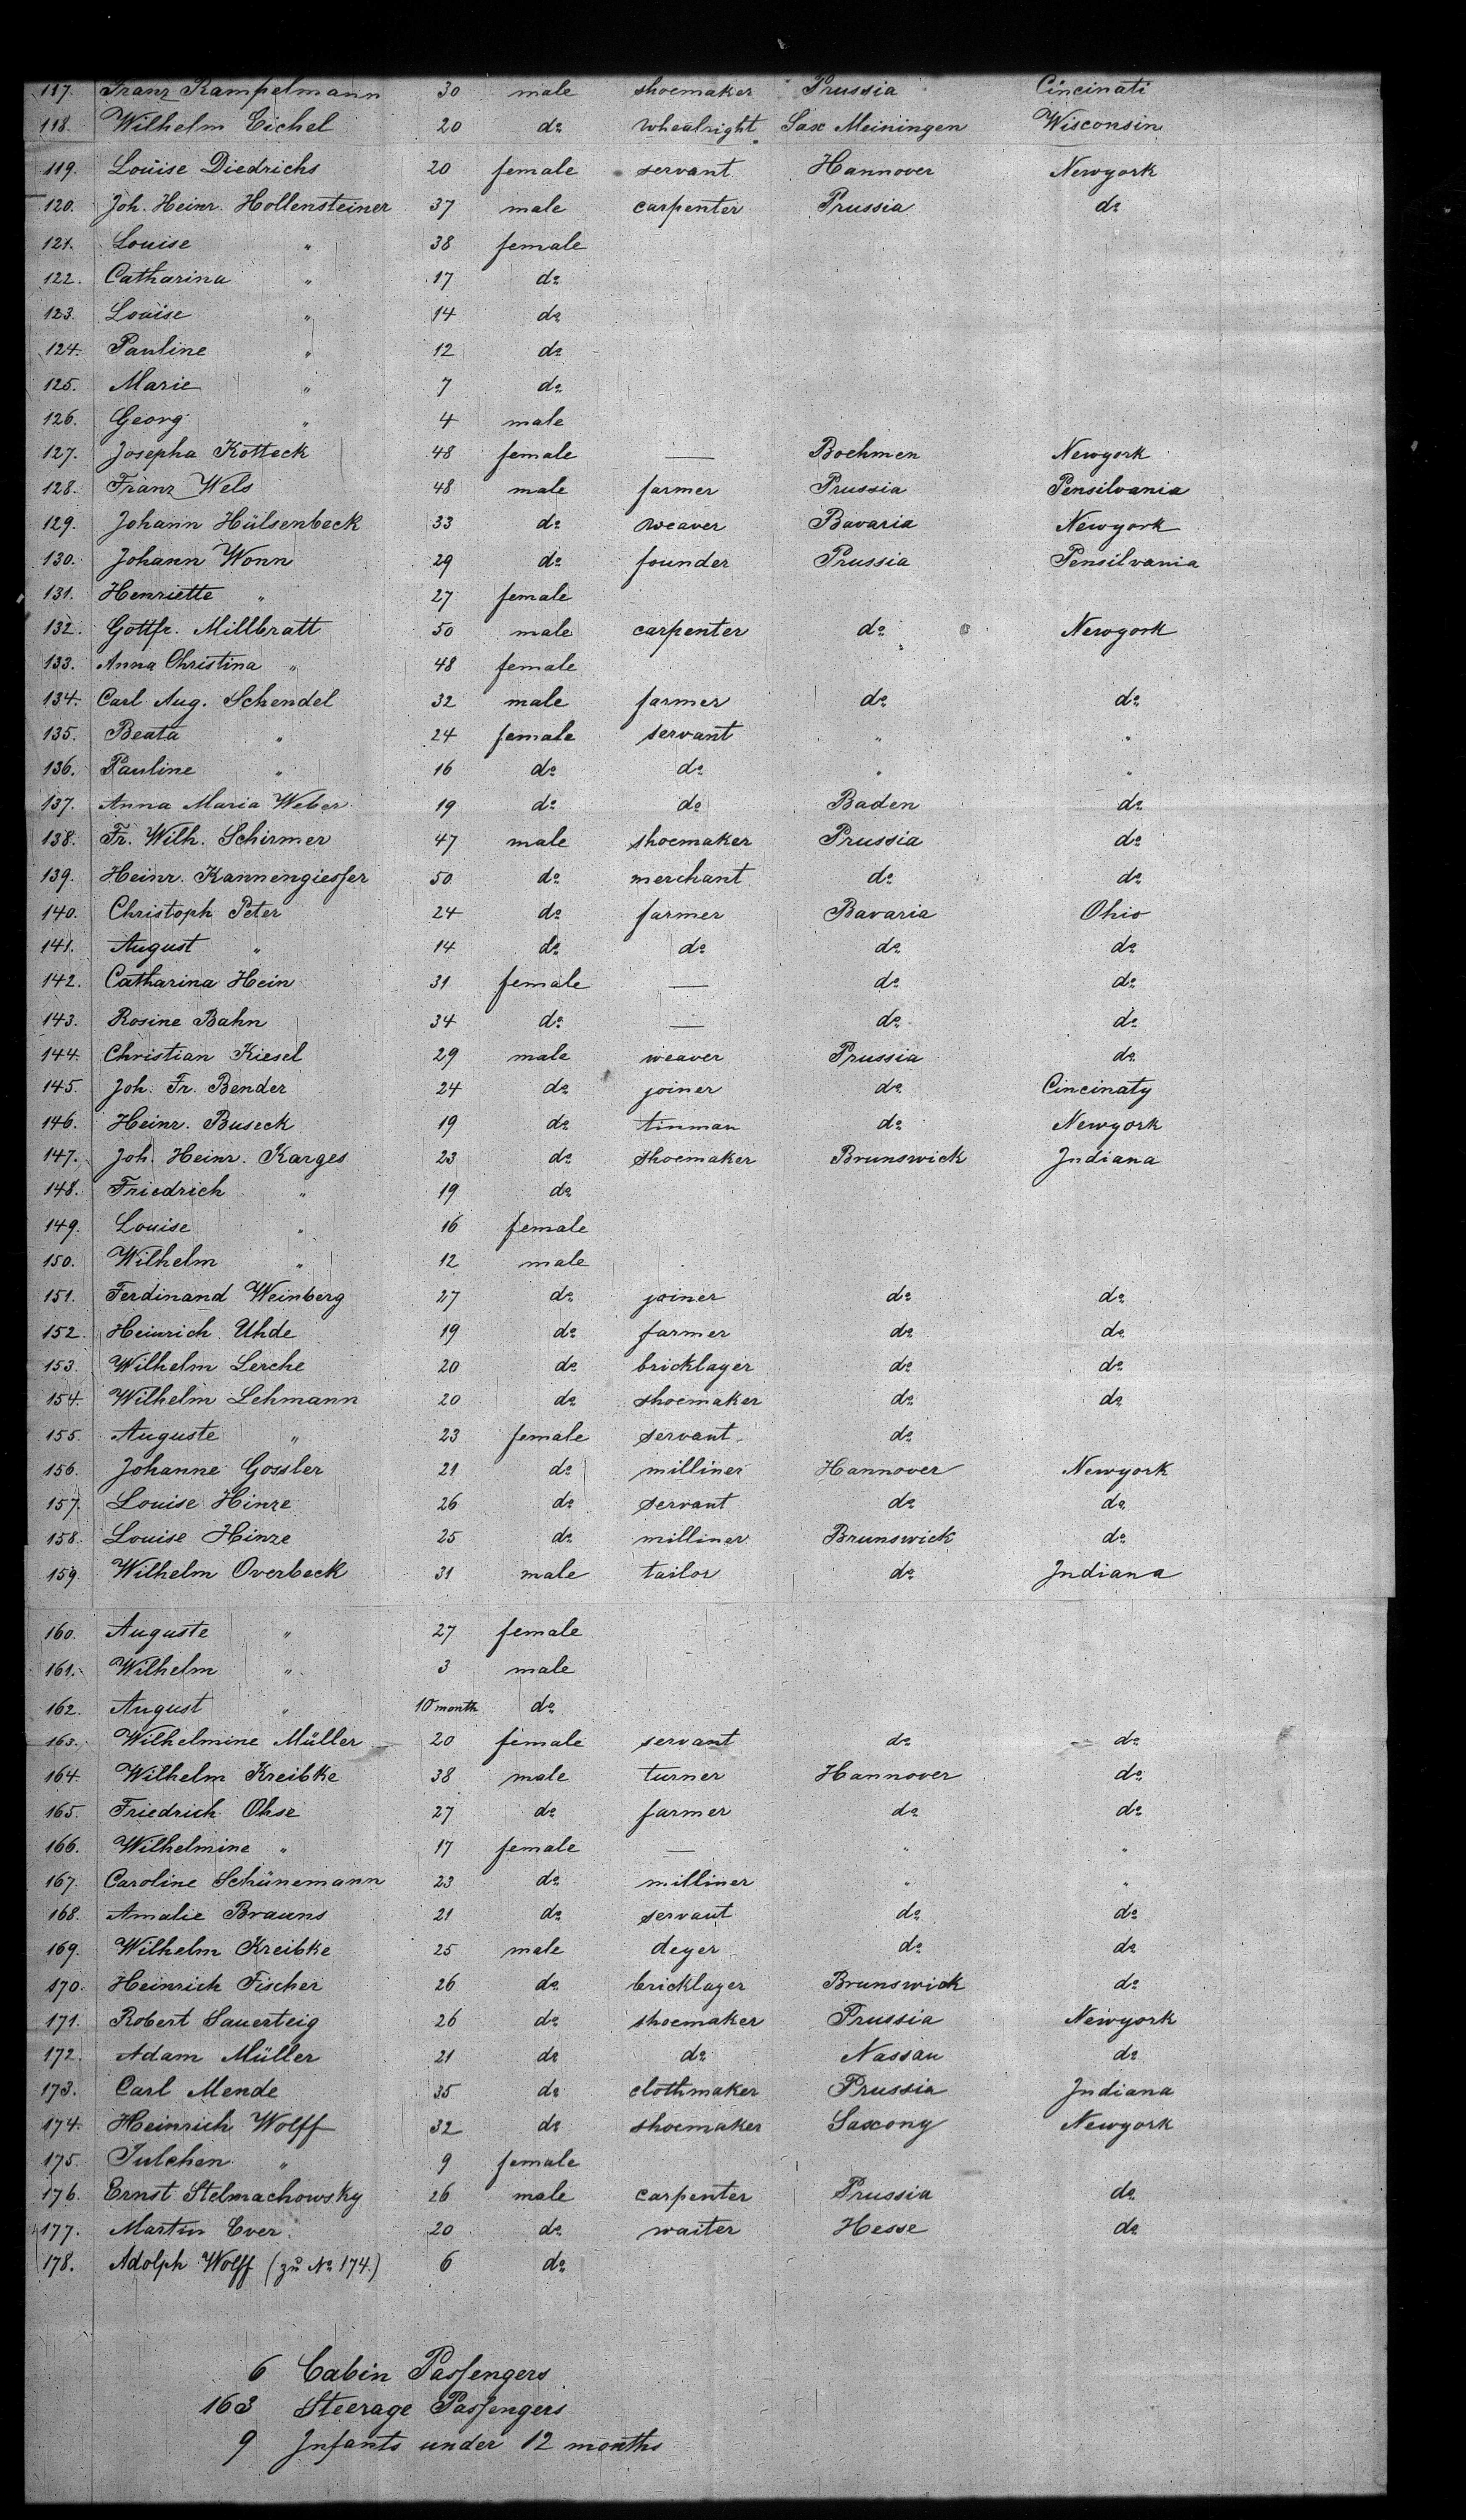 117. Franz Rampelmann 30 male shoemaker Prussia Cincinati
118. Wilhelm Eichel 20 do whealright Sax Meiningen Wisconsin
119. Louise Diedrichs 20 female servant Hannover Newyork
120. Joh. Heinr. Hollensteiner 37 male carpenter Prussia do
121. Louise " 38 female
122. Catharina " 17 do
123. Louise " 14 do
124. Pauline " 12 do
125. Marie " 7 do
126. Georg " 4 male
127. Josepha Kotteck 48 female — Boehmen Newyork
128. Franz Wels 48 male farmer Prussia Pensilvania
129. Johann Hülsenbeck 33 do weaver Bavaria Newyork
130. Johann Wonn 29 do founder Prussia Pensilvania
131. Henriette " 27 female
132. Gottfr. Millbratt 50 male carpenter do Newyork
133. Anna Christina " 48 female
134. Carl Aug. Schendel 32 male farmer do do
135. Beata " 24 female servant " "
136. Pauline " 16 do do " "
137. Anna Maria Weber 19 do do Baden do
138. Fr. Wilh. Schirmer 47 male shoemaker Prussia do
139. Heinr. Kannengiesser 50 do merchant do do
140. Christoph Peter 24 do farmer Bavaria Ohio
141. August " 14 do do do do
142. Catharina Hein 31 female — do do
143. Rosine Bahn 34 do — do do
144. Christian Kiesel 29 male weaver Prussia do
145. Joh. Fr. Bender 24 do joiner do Cincinaty
146. Heinr. Buseck 19 do tinman do Newyork
147. Joh. Heinr. Karges 23 do shoemaker Brunswick Indiana
148. Friedrich " 19 do
149. Louise " 16 female
150. Wilhelm " 12 male
151. Ferdinand Weinberg 27 do joiner do do
152. Heinrich Uhde 19 do farmer do do
153. Wilhelm Lerche 20 do bricklayer do do
154. Wilhelm Lehmann 20 do shoemaker do do
155. Auguste " 23 female servant do
156. Johanne Gossler 21 do milliner Hannover Newyork
157. Louise Hinze 26 do servant do do
158. Louise Hinze 25 do milliner Brunswick do
159. Wilhelm Overbeck 31 male tailor do Indiana
160. Auguste " 27 female
161. Wilhelm " 3 male
162. August " 10 month do
163. Wilhelmine Müller 20 female servant do do
164. Wilhelm Kreibke 38 male turner Hannover do
165. Friedrich Ohse 27 do farmer do do
166. Wilhelmine " 17 female — " "
167. Caroline Schünemann 23 do milliner " "
168. Amalie Brauns 21 do servant do do
169. Wilhelm Kreibke 25 male deyer do do
170. Heinrich Fischer 26 do bricklayer Brunswick do
171. Robert Sauerteig 26 do shoemaker Prussia Newyork
172. Adam Müller 21 do do Nassau do
173. Carl Mende 35 do clothmaker Prussia Indiana
174. Heinrich Wolff 32 do shoemaker Saxony Newyork
175. Julchen " 9 female
176. Ernst Stelmachowsky 26 male carpenter Prussia do
177. Martin Ever 20 do waiter Hesse do
178. Adolph Wolff (zu No 174.) 6 do
6 Cabin Passengers
163 Steerage Passengers
9 Infants under 12 months